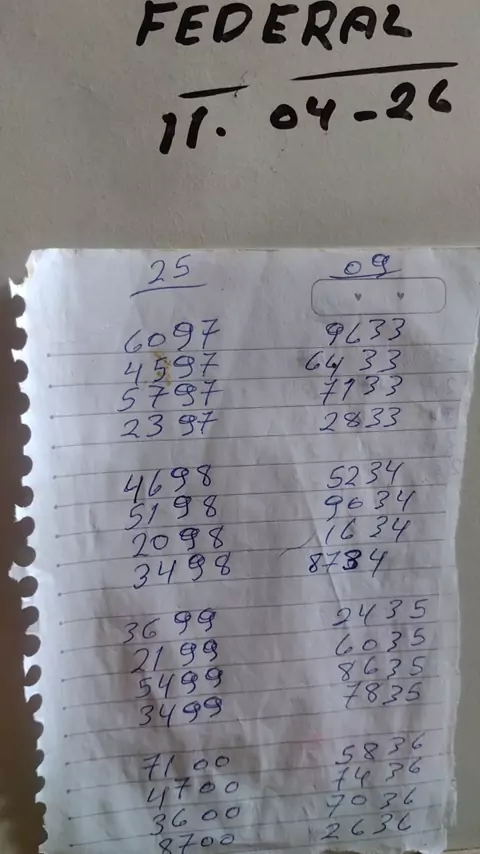 FEDERAL
11. 04-26
25 09
6097 9633
4597 6433
5797 7133
2397 2833
4698 5234
5198 9634
2098 1634
3498 8734
3699 2435
2199 6035
5499 8635
3499 7835
7100 5836
4700 7436
3600 7036
8700 2636